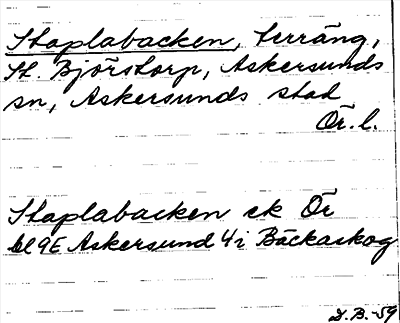 Staplabacken, terräng,
St. Björstorp, Askersunds
sn, Askersunds stad
Ör. l.
Staplabacken ek Ör
bl 9E Askersund 4i Bäckaskog
D.B.-59